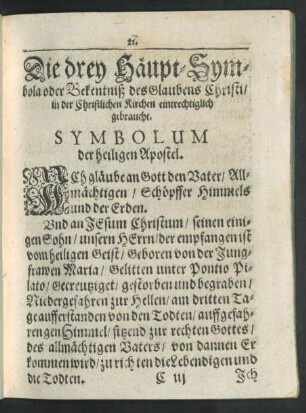 21.
Die drey Häupt-Sym-
bola oder Bekentniß des Glaubens Christi/
in der Christlichen Kirchen eintrechtiglich
gebraucht.
SYMBOLUM
der heiligen Apostel.
ICh gläube an Gott den Vater/ All-
mächtigen/ Schöpffer Himmels
und der Erden.
Vnd an JEsum Christum/ seinen eini-
gen Sohn/ unsern HErrn/ der empfangen ist
vom heiligen Geist/ Geboren von der Jung-
frawen Maria/ Gelitten unter Pontio Pi-
lato/ Gecreutziget/ gestorben und begraben/
Niedergefahren zur Hellen/ am dritten Ta-
ge aufferstanden von den Todten/ auffgefah-
ren gen Himmel/ sitzend zur rechten Gottes/
des allmächtigen Vaters/ von dannen Er
kommen wird/ zu richten die Lebendigen und
die Todten. C iij Jch